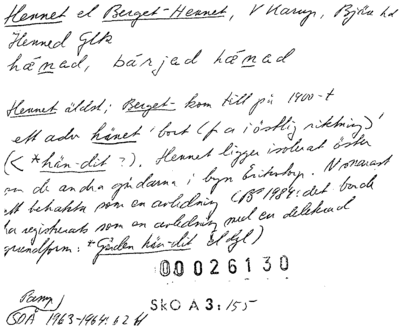 Hennet el Berget-Hennet, V Karup, Bjäre hd
Henned Glk
hænad, bárjad hænad
Hennet äldst; Berget- kom till på 1900-t
ett adv hänet 'bort (f a i östlig riktning)'
(< *hän-dit ?). Hennet ligger isolerat öster
om de andra gårdarna i byn Eriksterp. Normalast
att betrakta som en avledning (BP 1984: det borde
ha registrerats som en avledning med en delekad
grundform: *Gården hän-dit el dyl)
00026130
SkO A3: 155
SOÅ 1963-1964: 62 ff